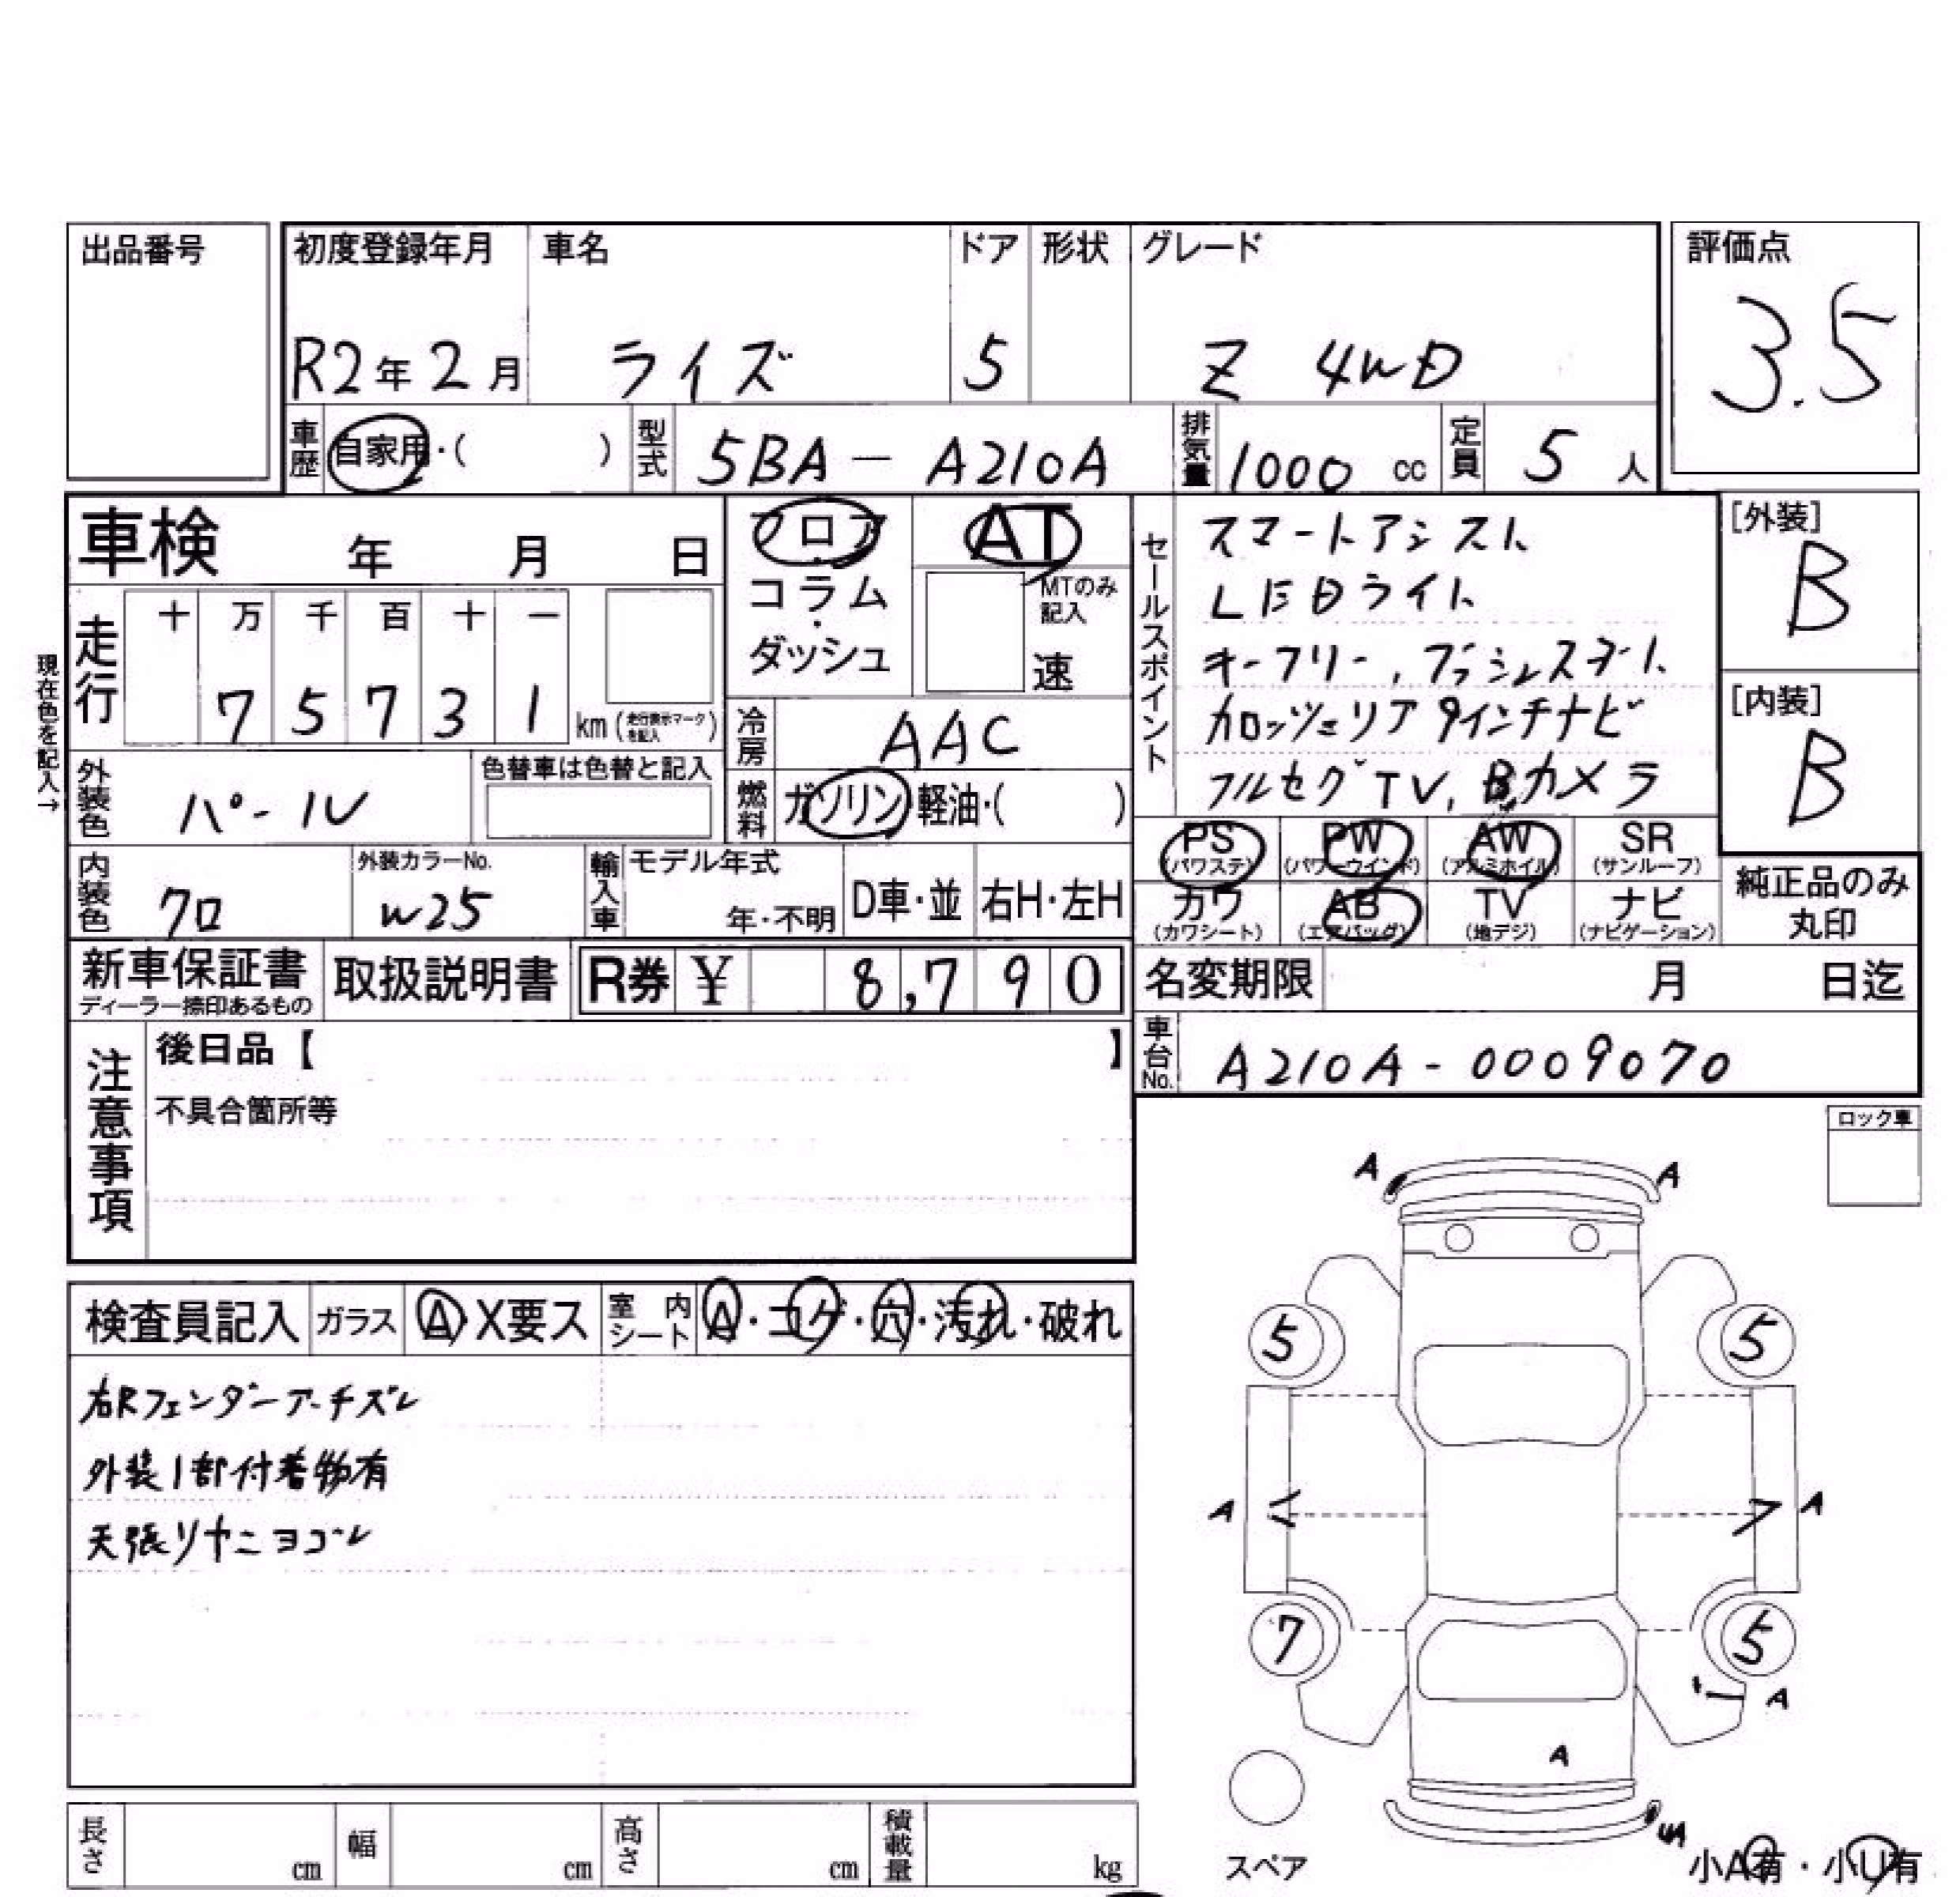 出品番号
初度登録年月 車名 ドア 形状 グレード 評価点
R2年 2月 ライズ 5 Z 4WD 3.5
車歴 自家用・( ) 型式 5BA-A210A 排気量 1000 cc 定員 5 人
車検 年 月 日
フロア・コラム・ダッシュ
AT
MTのみ記入
速
現在色を記入→
走行 十 万 千 百 十 一
7 5 7 3 1 km (走行表示マークを記入)
冷房 AAC
外装色 パール
色替車は色替と記入
燃料 ガソリン・軽油・( )
セールスポイント
スマートアシスト
LEDライト
キーフリー, プッシュスタート
カロッツェリア 9インチナビ
フルセグTV, Bカメラ
[外装]
B
[内装]
B
PS (パワステ) PW (パワーウインド) AW (アルミホイル) SR (サンルーフ)
カワ (カワシート) AB (エアバッグ) TV (地デジ) ナビ (ナビゲーション)
純正品のみ丸印
内装色 クロ 外装カラーNo. W25 輸入車 モデル年式 年・不明 D車・並 右H・左H
新車保証書 ディーラー捺印あるもの 取扱説明書 R券 ¥ 8,790
名変期限 月 日迄
車台No. A210A-0009070
注意事項
後日品【 】
不具合箇所等
ロック車
検査員記入 ガラス A・X要ス 室内シート A・コゲ・穴・汚れ・破れ
右Rフェンダーアーチズレ
外装1部付着物有
天張リヤニヨゴレ
A A
5 5
A A
7 5
A
A
UA
スペア
小A有・小U有
長さ cm 幅 cm 高さ cm 積載量 kg